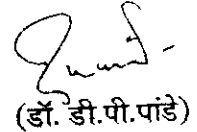 (डॉ. डी.पी.पांडे)